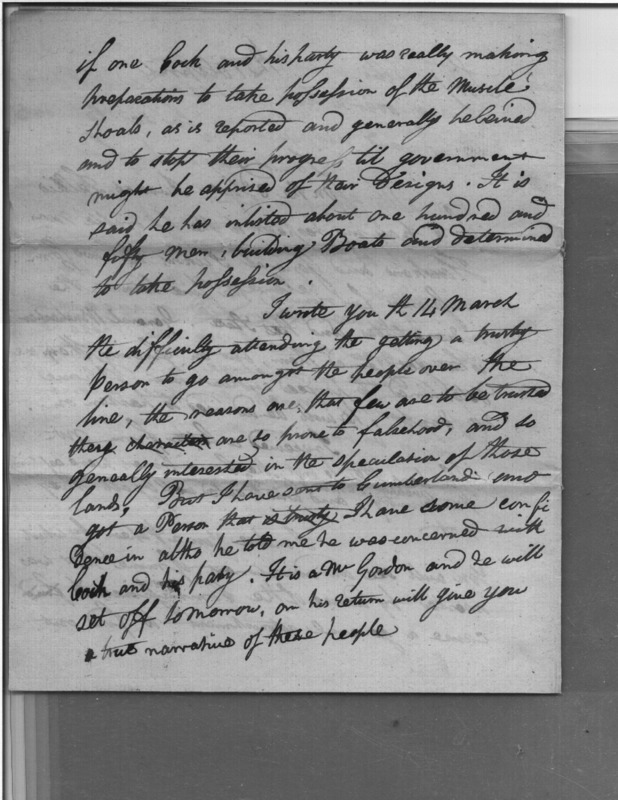 if one Cock and his party was really making
preparations to take possession of the Muscle
Shoals, as is reported and generally beleived
and to stop their progress til government
might be apprised of their Designs. It is
said he has inlisted about one hundred and
fifty men, building Boats and determined
to take possession.
I wrote you th 14 March
the difficuly attending the getting a trusty
Person to go amongst the people over the
line, the reasons are, that few are to be trusted
they are so prone to falsehood, and so
geneally interested in the speculation of those
lands, But I have sent to Cumberland and
got a Person that is trusty I have some confi
dence in altho he told me he was concerned with
Cock and his paty. It is a Mr Gordon and he will
set off tomorrow, on his return will give you
a true narrative of these people